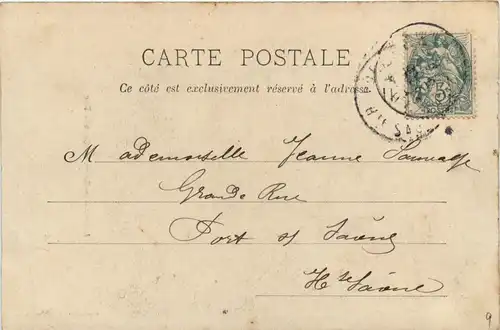 CARTE POSTALE
Ce côté est exclusivement réservé à l'adresse
Mademoiselle Jeanne Sauvage
Grande Rue
Port s/ Saône
Hte Saône
5
9